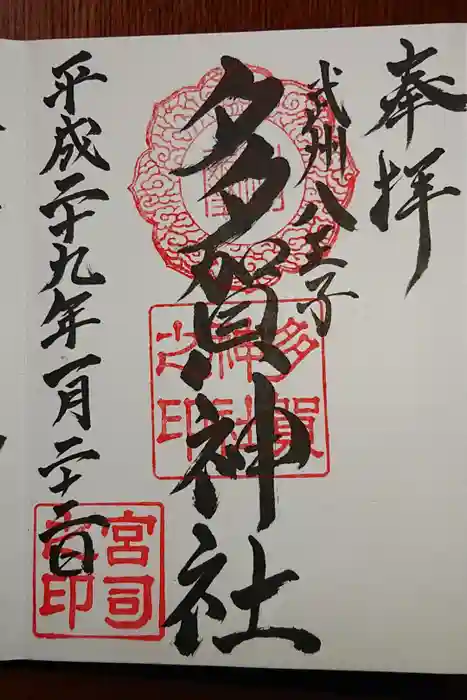 奉拝
武州八王子
多賀神社
多賀神社之印
平成二十九年一月二十二日
宮司之印